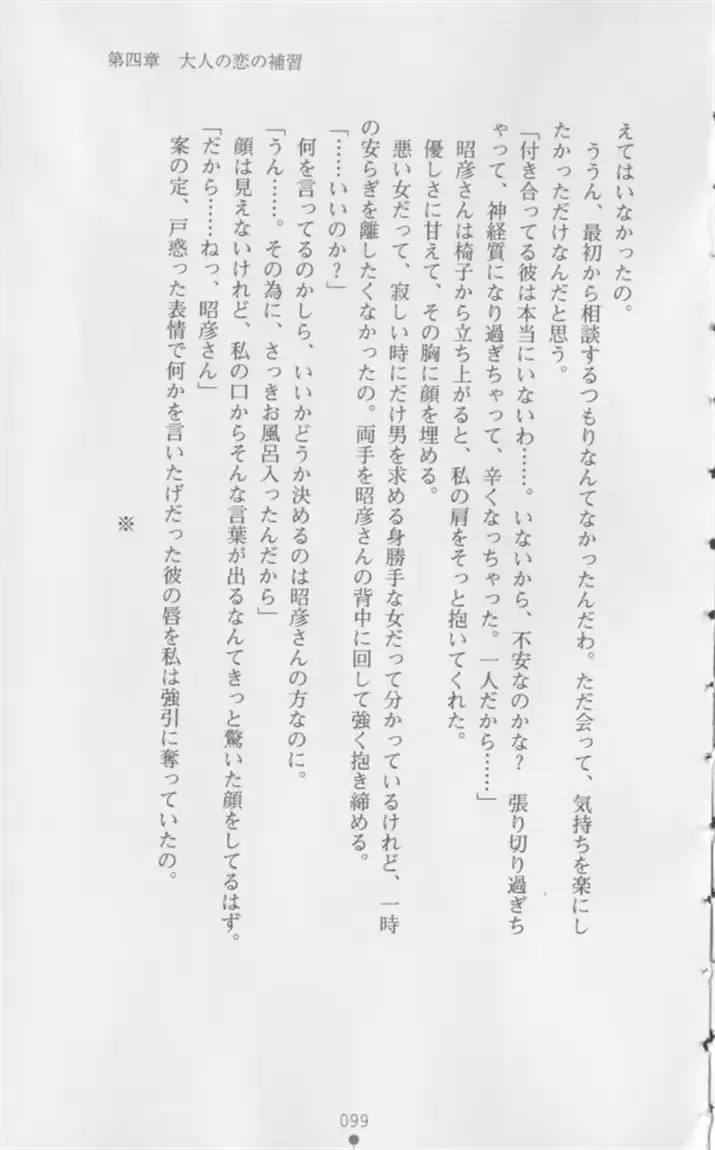 第四章　大人の恋の補習
えてはいなかったの。
　ううん、最初から相談するつもりなんてなかったんだわ。ただ会って、気持ちを楽にし
たかっただけなんだと思う。
「付き合ってる彼は本当にいないわ……。いないから、不安なのかな？　張り切り過ぎち
ゃって、神経質になり過ぎちゃって、辛くなっちゃった。一人だから……」
　昭彦さんは椅子から立ち上がると、私の肩をそっと抱いてくれた。
　優しさに甘えて、その胸に顔を埋める。
　悪い女だって、寂しい時にだけ男を求める身勝手な女だって分かっているけれど、一時
の安らぎを離したくなかったの。両手を昭彦さんの背中に回して強く抱き締める。
「……いいのか？」
　何を言ってるのかしら、いいかどうか決めるのは昭彦さんの方なのに。
「うん……。その為に、さっきお風呂入ったんだから」
　顔は見えないけれど、私の口からそんな言葉が出るなんてきっと驚いた顔をしてるはず。
「だから……ねっ、昭彦さん」
　案の定、戸惑った表情で何かを言いたげだった彼の唇を私は強引に奪っていたの。
※
099